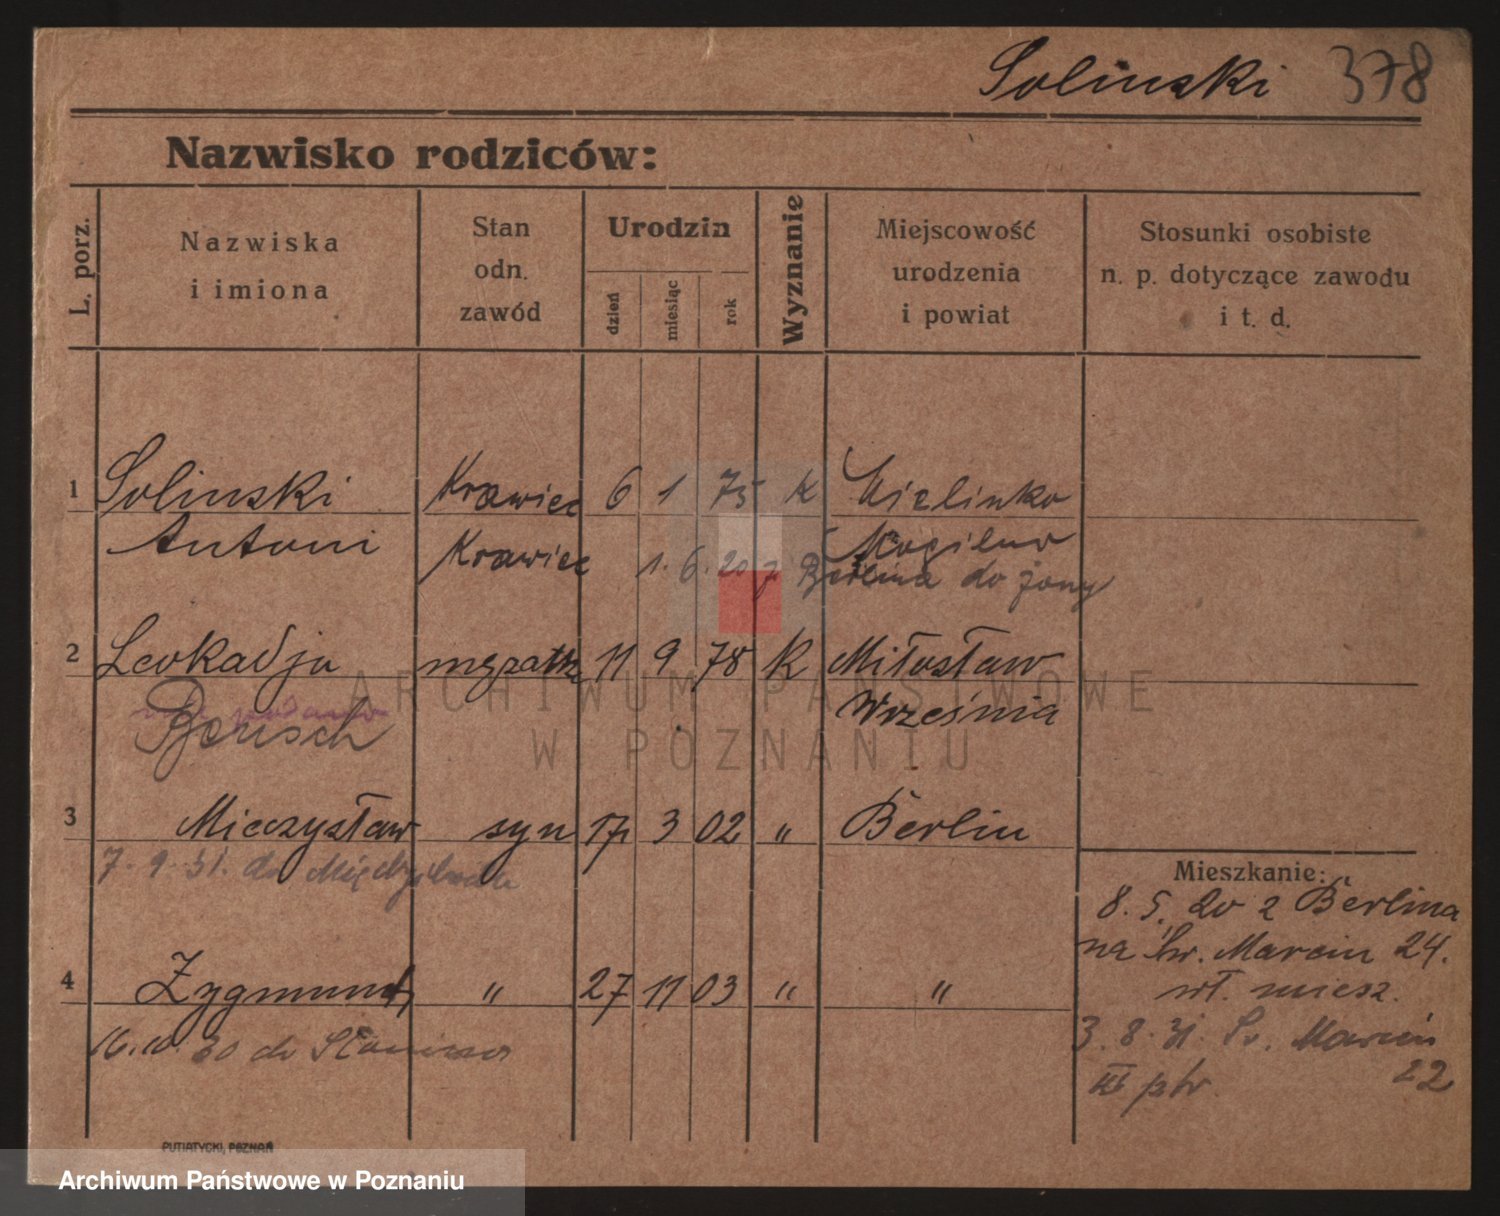 Solinski 378
Nazwisko rodziców:
L. porz.
Nazwiska
i imiona
Stan
odn.
zawód
Urodzin
dzień
miesiąc
rok
Wyznanie
Miejscowość
urodzenia
i powiat
Stosunki osobiste
n. p. dotyczące zawodu
i t. d.
1 Solinski Krawiec 6 1 75 K Wielinko
Antoni Mogilno
Krawiec 1. 6. 20 z Berlina do żony
2 Leokadja mężatka 11 9 78 K Miłosław
Września
Bensch
3 Mieczysław syn 17 3 02 " Berlin
7. 9. 31. do
Mieszkanie:
8. 5. 20 z Berlina
na Św. Marcin 24.
wł. miesz.
4 Zygmunt " 27 11 03 " "
3. 8. 31. Św. Marcin
22
III ptr.
16. 10. 30 do
PUTIATYCKI, POZNAŃ
ARCHIWUM PAŃSTWOWE
W POZNANIU
Archiwum Państwowe w Poznaniu